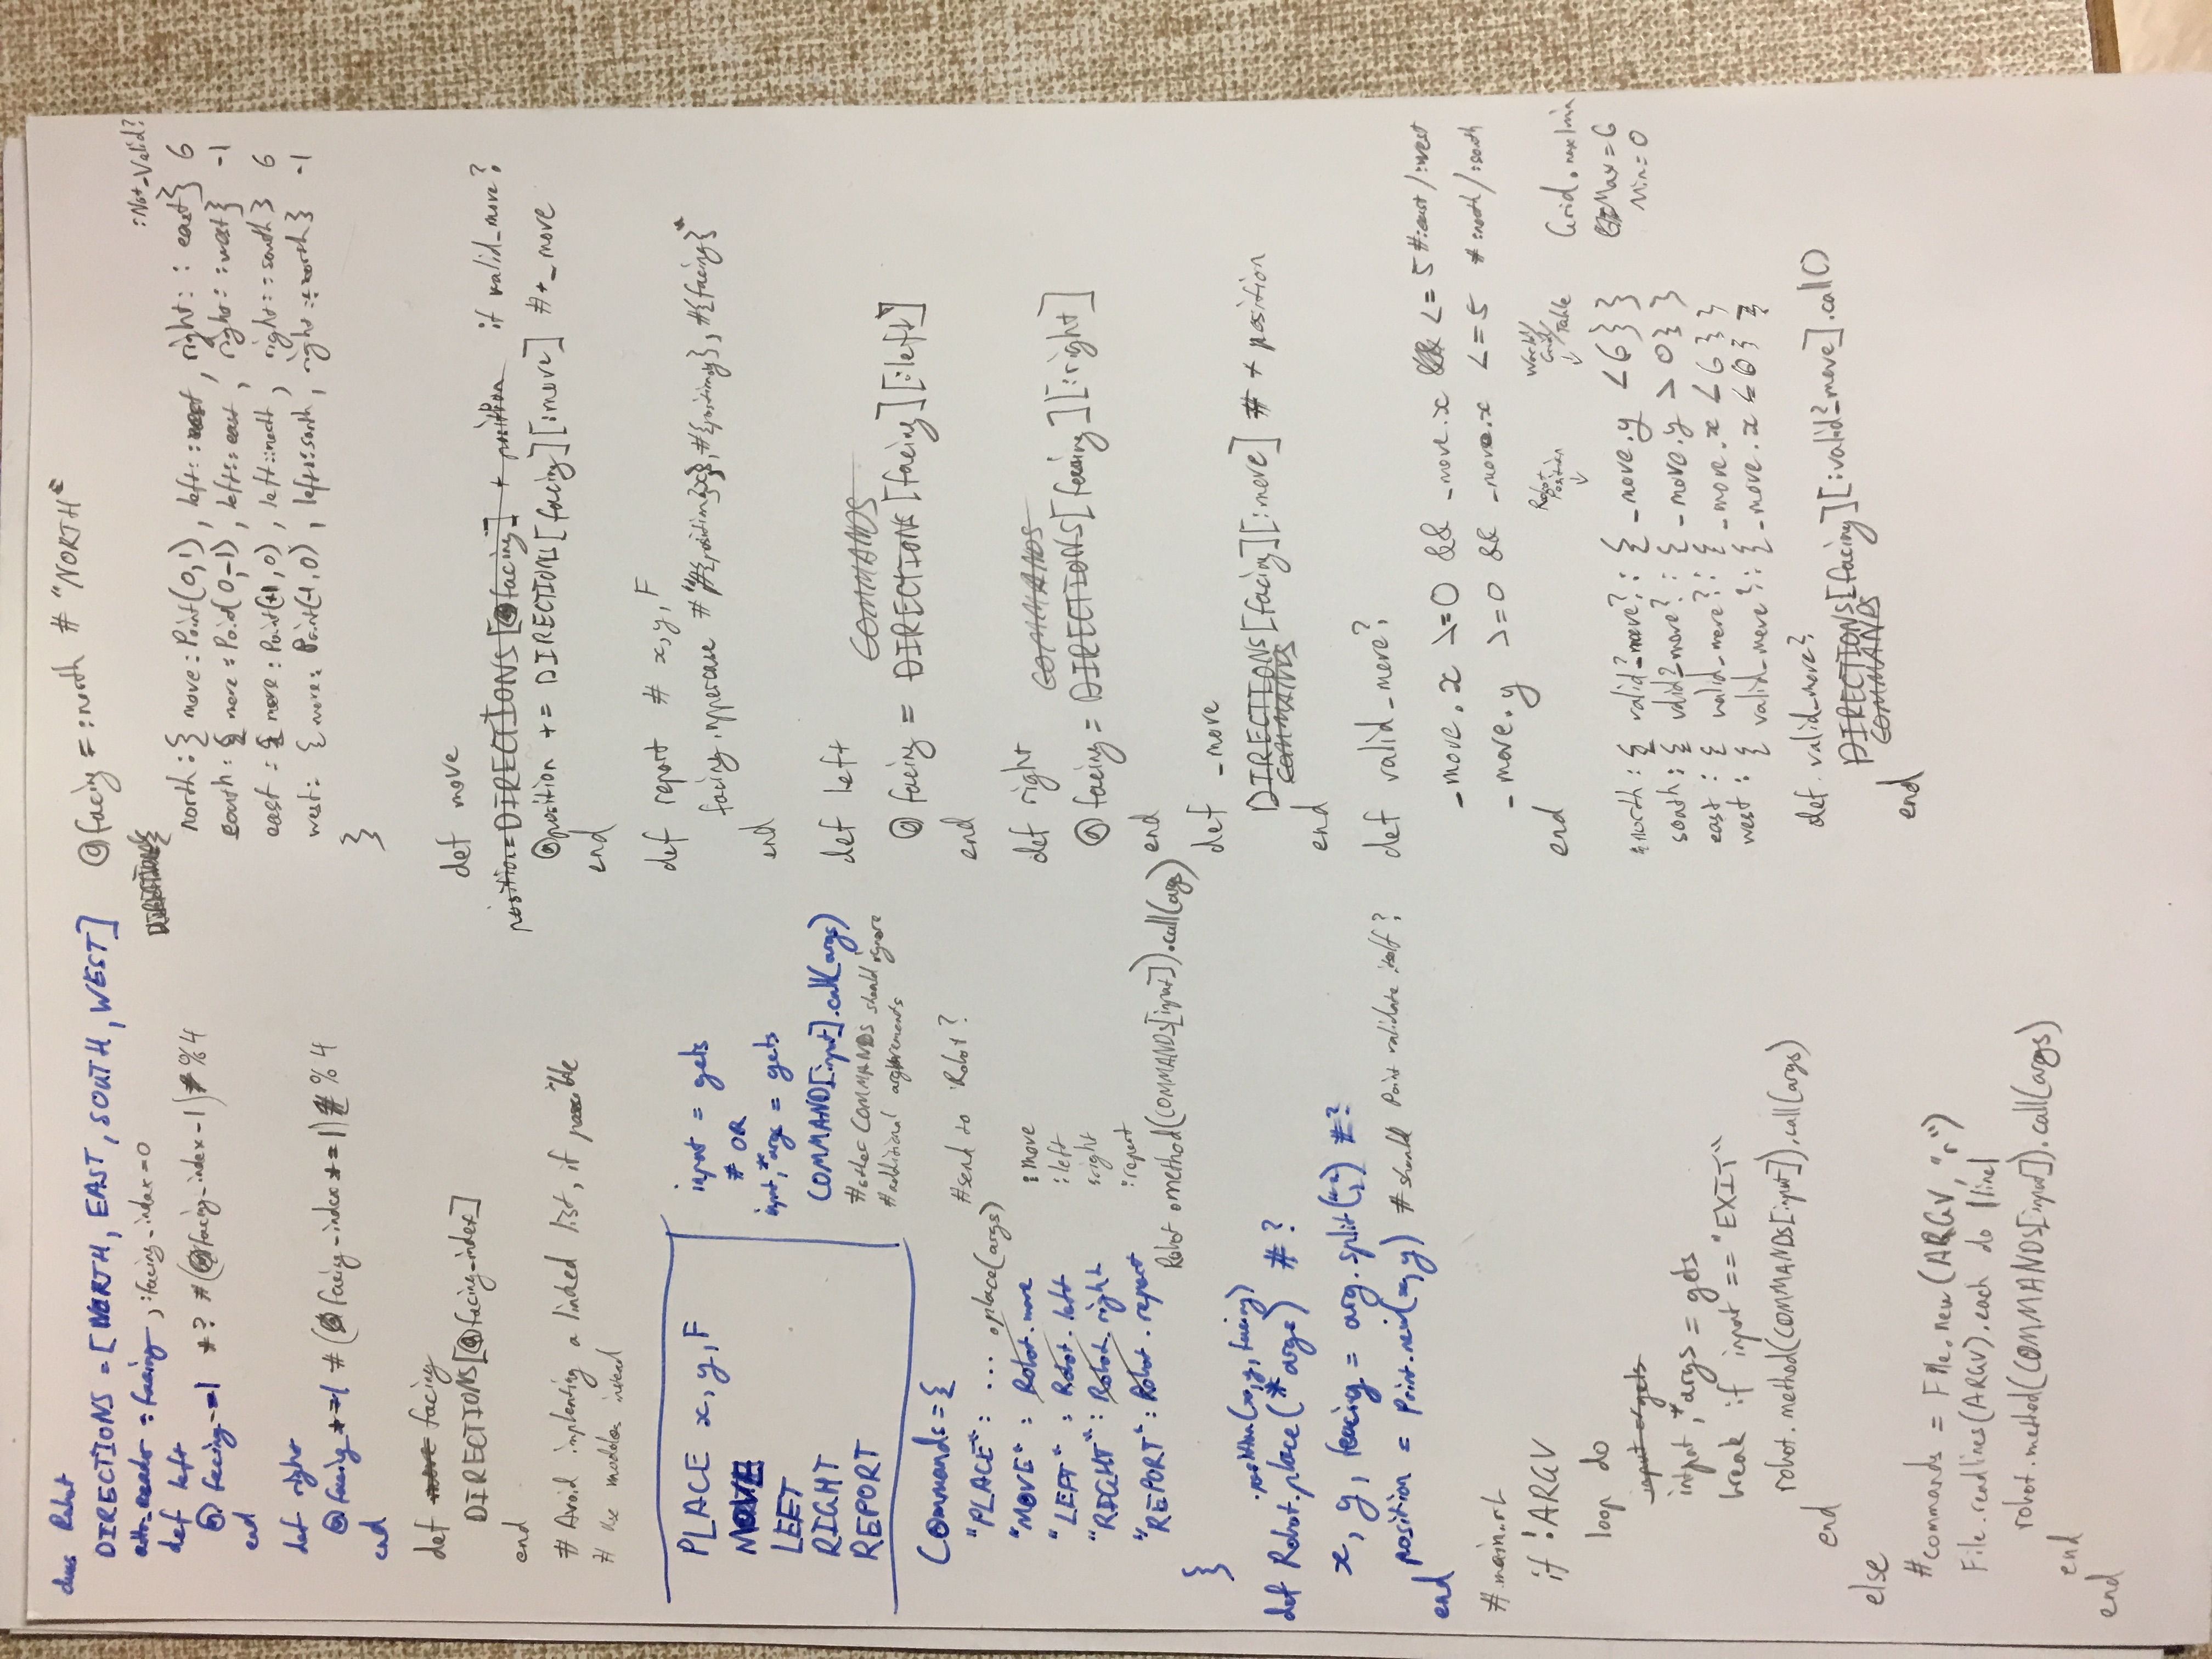 class Robot
DIRECTIONS = [NORTH, EAST, SOUTH, WEST]
attr_reader :facing, :facing_index=0
def left
@facing-=1 +? #(@facing_index-1) %4
end
def right
@facing+=1 #(@facing_index+=1) %4
end
def move facing
DIRECTIONS[@facing_index]
end
# Avoid implenting a linked list, if possible
# Use modolos instead
PLACE x, y, F
MOVE
LEFT
RIGHT
REPORT
input = gets
# OR
input, *args = gets
COMMAND[input].call(args)
#other COMMANDS should ignore
#additional
Commands = {
#send to Robot?
"PLACE": ... .place(args)
"MOVE" : Robot.move :move
"LEFT" : Robot.left :left
"RIGHT" : Robot.right :right
"REPORT" : Robot.report :report
Robot.method(COMMANDS[input]).call(args)
}
.position(x, y, facing)
def Robot.place(*args) #?
x, y, facing = arg.split(",") #?
position = Point.new(x, y) # should Point validate itself?
end
# main.rb
if !ARGV
loop do
input = gets
intput, *args = gets
break if input == "EXIT"
robot.method(COMMANDS[input]).call(args)
end
else
#commands = File.new(ARGV, "r")
File.readlines(ARGV).each do |line|
robot.method(COMMANDS[input]).call(args)
end
end
@facing = :north # "NORTH"
:Not_Valid?
DIRECTIONS {
north: { move: Point(0,1), left: :west, right: :east} 6
south: { move: Point(0,-1), left: :east, right: :west} -1
east: { move: Point(+1,0), left: :north, right: :south} 6
west: { move: Point(-1,0), left: :south, right: :north} -1
}
def move
position=DIRECTIONS[@facing] + position if valid_move?
@position += DIRECTIONS[facing][:move] #+_move
end
def report # x, y, F
facing.uppercase # "#{position.x}, #{position.y}, #{facing}"
end
def left
COMMANDS
@facing = DIRECTIONS[facing][:left]
end
def right
COMMANDS
@facing = DIRECTIONS[facing][:right]
end
def _move
DIRECTIONS[facing][:move] # + position
COMMANDS
end
def valid_move?
_move.x >=0 && _move.x <= 5 #:east/:west
_move.y >=0 && _move.x <=5 # :north/:south
end
Robot Position
World/ Grid/ Table
Grid.max/min
Max = 6
Min = 0
north: { valid?move?: { _move.y <6} }
south: { valid?_move?: { _move.y > 0} }
east: { valid_move?: { _move.x <6 } }
west: { valid_move?: { _move.x 0} }
def.valid_move?
DIRECTIONS[facing][:valid?_move].call()
COMMANDS
end